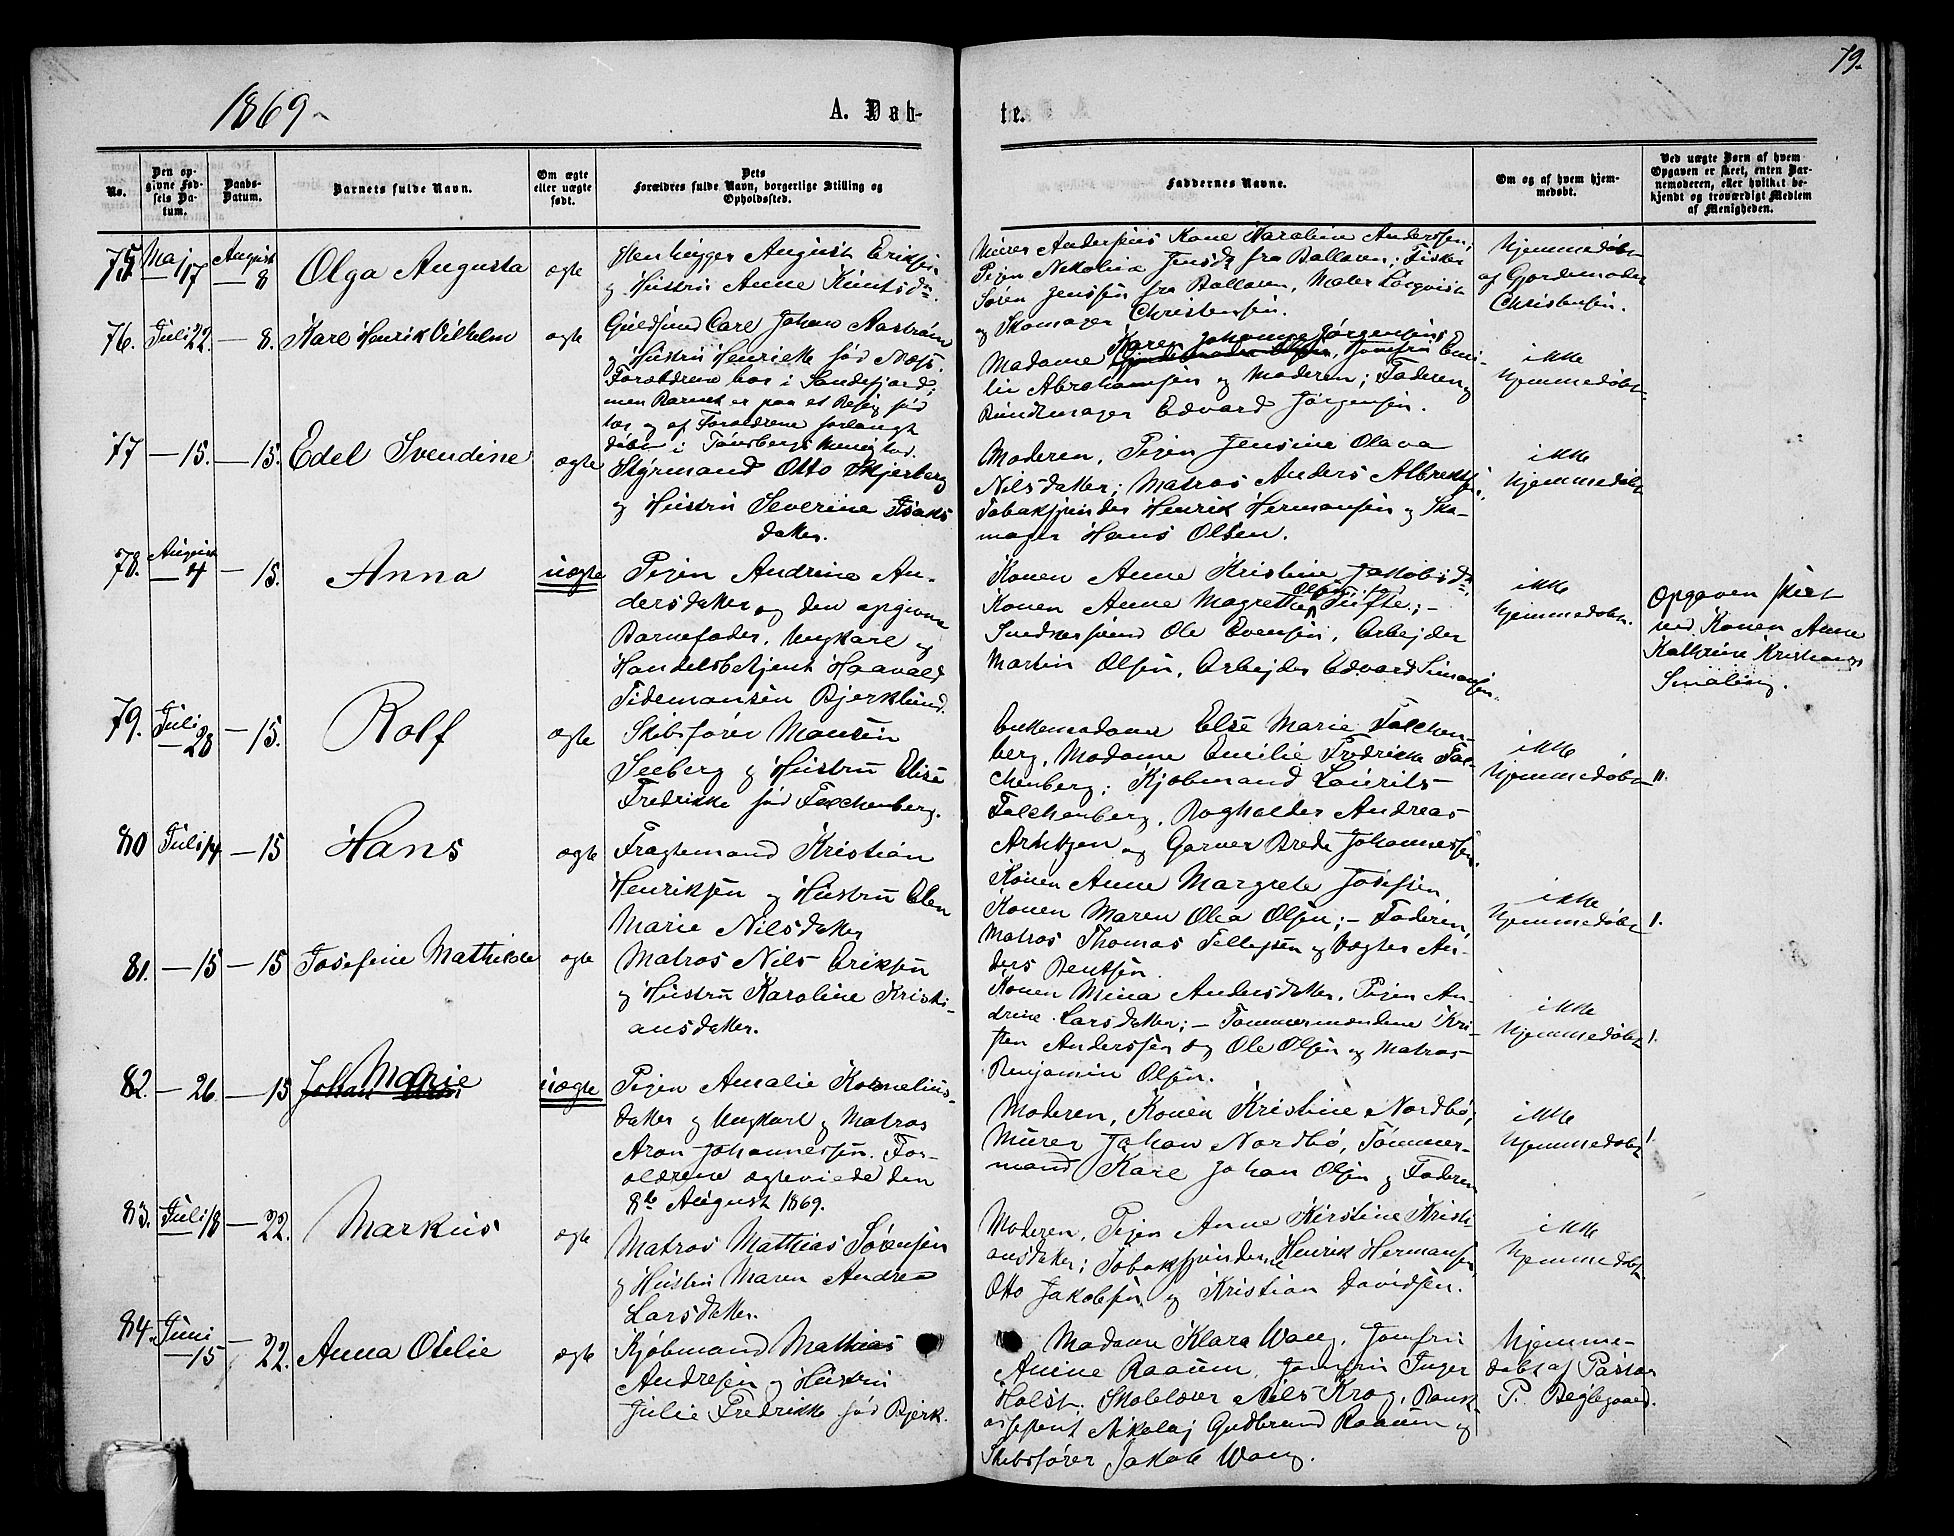 79.
1869.
A. Døb-
te.
No.
Den op-
givne Fød-
sels Da-
tum.
Daabs-
Datum.
Barnets fulde Navn.
Om ægte
eller uægte
født.
Dets
Forældres fulde Navn, borgerlige Stilling og
Opholdssted.
Faddernes Navne.
Om og af hvem hjem-
medøbt.
Ved uægte Børn af hvem
Opgaven er skeet, enten Bar-
nemoderen, eller hvilket be-
kjendt og troværdigt Medlem
af Menigheden.
75. Maj 17 August 8 Olga Augusta ægte
August Eriksen
og Hustru Anne Knutsd.
Murer Andersens Kone Karoline Anderssen,
Pigen Nikolina Jensd. fra Balloven; Fisker
Søren Jenssen fra Balloven, Maler Løvqvist
og Skomager Christensen.
Hjemmedøbt
af Gjordemoder
Christensen.
76. Juli 22. — 8. Karl Henrik Vilhelm ægte
Guldsmed Carl Johan Aastrøm
og Hustru Henriette fød Næss.
Forældrene bor i Sandefjord,
men Barnet er paa et Besøg fød
her og af Forældrene forlangt
døbt i Tønsbergs Menighed.
Karen Johanne Jørgensen,
Madame Jomfru Emi-
lie Abrahamsen og Moderen; Faderen og
Buntmager Edvard Jørgensen.
ikke
hjemmedøbt.
77 — 15. — 15. Edel Svendine ægte
Styrmand Otto Skjerberg
og Hustru Severine Isaks-
datter.
Moderen, Pigen Jensine Olava
Nilsdatter; Matros Anders Albrektsen,
Tobakspinder Henrik Hermansen og Sko-
mager Hans Olsen.
ikke
hjemmedøbt
78. August 4 — 15. Anna uægte
Pigen Andrine An-
dersdatter og den opgivne
Barnefader, Ungkarl og
Handelsbetjent Haavald
Tidemansen Bjerklund.
Konen Anne Kristine Jakobsd.
Konen Anne Magrethe Olsen Tufte; —
Snedkersvend Ole Evensen, Arbejder
Martin Olsen, Arbejder Edvard Simonsen.
ikke
hjemmedøbt.
Opgaven skeet
ved Konen Anne
Kathrine Kristians
Smaling.
79. Juli 28 — 15. Rolf ægte
Skibsfører Monsen
Seeberg og Hustru Elise
Fredrikke fød Falchenberg.
Enkemadame Else Marie Falchen-
berg, Madame Emilie Fredrikke Fal-
chenberg; Kjøbmand Laurits
Falchenberg, Bogholder Andreas
og Garver Brede Johannessen.
ikke
hjemmedøbt
80 Juli 14 — 15 Hans ægte
Fragtemand Kristian
Henriksen og Hustru Elen
Marie Nilsdatter
Konen Anne Margrete Josefsen,
Konen Maren Olea Olsen; — Faderen,
Matros Thomas Tellefsen og Vægter An-
ders Bentsen.
ikke
hjemmedøbt.
81. — 15 — 15 Josefine Mathilde ægte
Matros Nils Eriksen
og Hustru Karoline Kristi-
ansdatter.
Konen Mina Andersdatter, Pigen An-
drine Larsdatter; — Tømmermændene Kri-
sten Anderssen og Ole Olsen og Matros
Benjamin Olsen.
ikke
hjemmedøbt.
82. — 26. — 15 Marie uægte
Pigen Amalie Kornelius-
datter og Ungkarl og Matros
Aron Johannessen. For-
ældrene ægteviede den
8de August 1869.
Moderen, Konen Kristine Nordbø;
Murer Johan Nordbø, Tømmer-
mand Karl Johan Olsen og Faderen
ikke
hjemmedøbt.
83. Juli 18 — 22. Markus ægte
Matros Mathias Sørensen
og Hustru Maren Andrea
Larsdatter.
Moderen, Pigen Anne Kirstine Kristi-
ansdatter; Tobakspinderne Henrik Hermansen,
Otto Jakobsen og Kristian Davidsen.
ikke
hjemmedøbt.
84. Juni 15 — 22. Anna Otilie ægte
Kjøbmand Mathias
Andresen og Hustru
Julie Fredrikke fød Bjerk.
Madame Klara Wang, Jomfru
Amine Raaum, Jomfru Inger
Holst; Skolelærer Nils Krog, Bank-
assistent Nikolaj Gudbrand Raaum og
Skibsfører Jakob Wang.
Hjemme-
døbt af Pastor
P. Beglegaard.